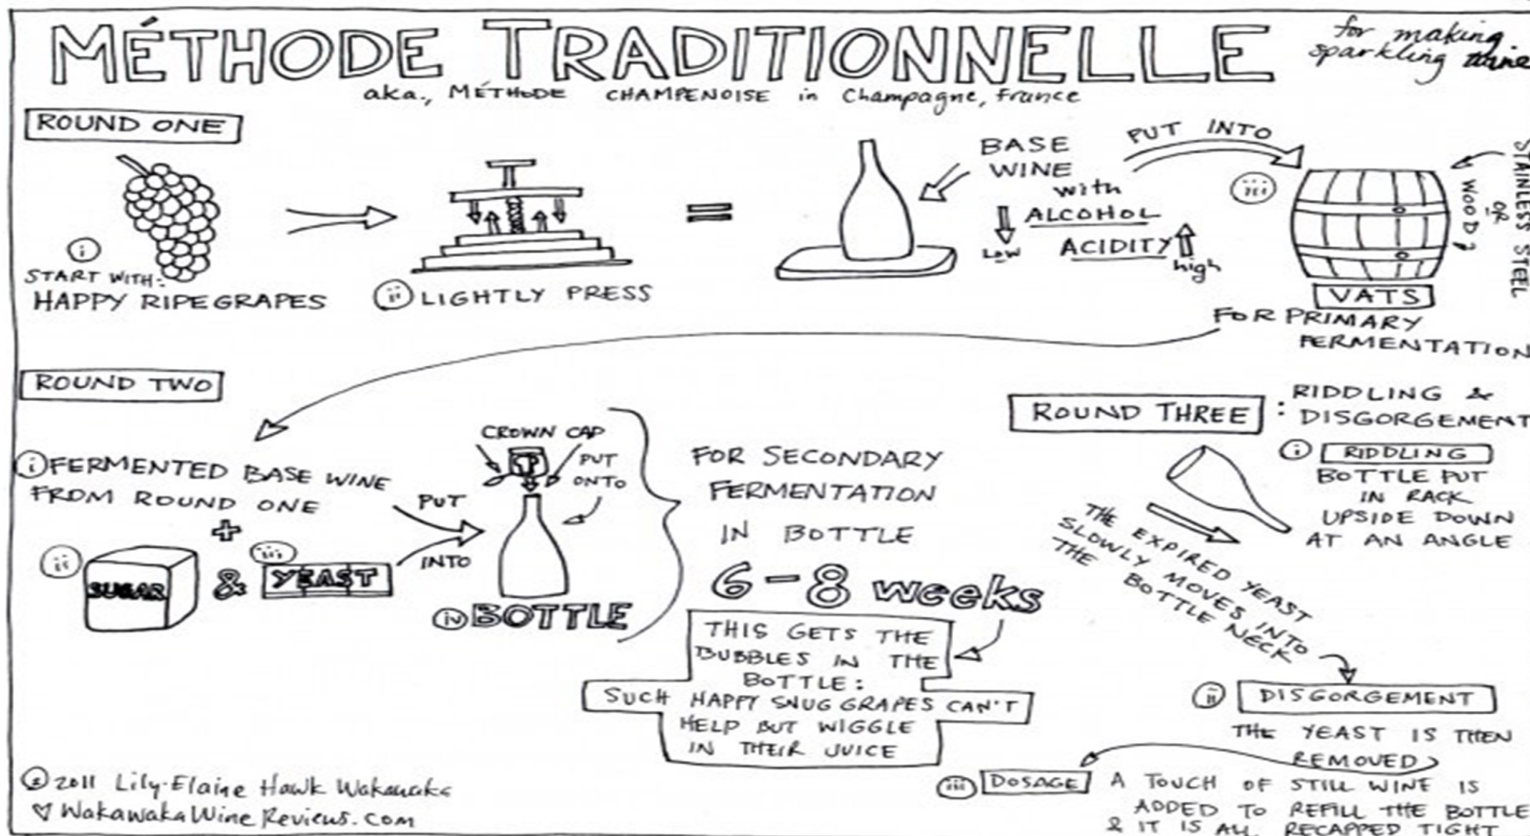 MÉTHODE TRADITIONNELLE
for making
sparkling wine
aka., MÉTHODE CHAMPENOISE in Champagne, France
ROUND ONE
i
START WITH:
HAPPY RIPE GRAPES
ii LIGHTLY PRESS
=
BASE
WINE
with
ALCOHOL
Low
ACIDITY
high
PUT INTO
iii
STAINLESS STEEL
OR
WOOD?
VATS
FOR PRIMARY
FERMENTATION
ROUND TWO
i FERMENTED BASE WINE
FROM ROUND ONE
+
ii
SUGAR
&
iii
YEAST
PUT
INTO
CROWN CAP
PUT
ONTO
iv BOTTLE
FOR SECONDARY
FERMENTATION
IN BOTTLE
6-8 weeks
THIS GETS THE
BUBBLES IN THE
BOTTLE:
SUCH HAPPY SNUG GRAPES CAN'T
HELP BUT WIGGLE
IN THEIR JUICE
ROUND THREE : RIDDLING &
DISGORGEMENT
i RIDDLING
BOTTLE PUT
IN RACK
UPSIDE DOWN
AT AN ANGLE
THE EXPIRED YEAST
SLOWLY MOVES INTO
THE BOTTLE NECK
ii DISGORGEMENT
THE YEAST IS THEN
REMOVED
iii DOSAGE A TOUCH OF STILL WINE IS
ADDED TO REFILL THE BOTTLE
& IT IS ALL RECAPPED TIGHT
© 2011 Lily-Elaine Hawk Wakawaka
WakawakaWineReviews.com